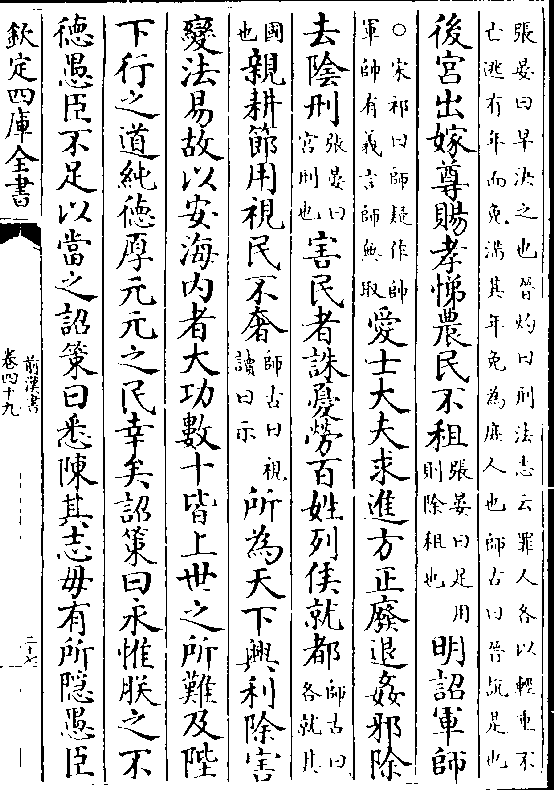 張晏曰早決之也晉灼曰刑法志云罪人各以輕重不
亡逃有年而免滿其年免為庶人也師古曰晉說是也
後宮出嫁尊賜孝悌農民不租張晏曰足用則除租也明詔軍師
○宋祁曰師疑作帥軍師有義言師無取愛士大夫求進方正廢退姦邪除
去陰刑張晏曰宮刑也害民者誅憂勞百姓列侯就都師古曰各就其
國也親耕節用視民不奢師古曰視讀曰示所為天下興利除害
變法易故以安海內者大功數十皆上世之所難及陛
下行之道純德厚元元之民幸矣詔策曰永惟朕之不
德愚臣不足以當之詔策曰悉陳其志毋有所隱愚臣
欽定四庫全書
前漢書
卷四十九